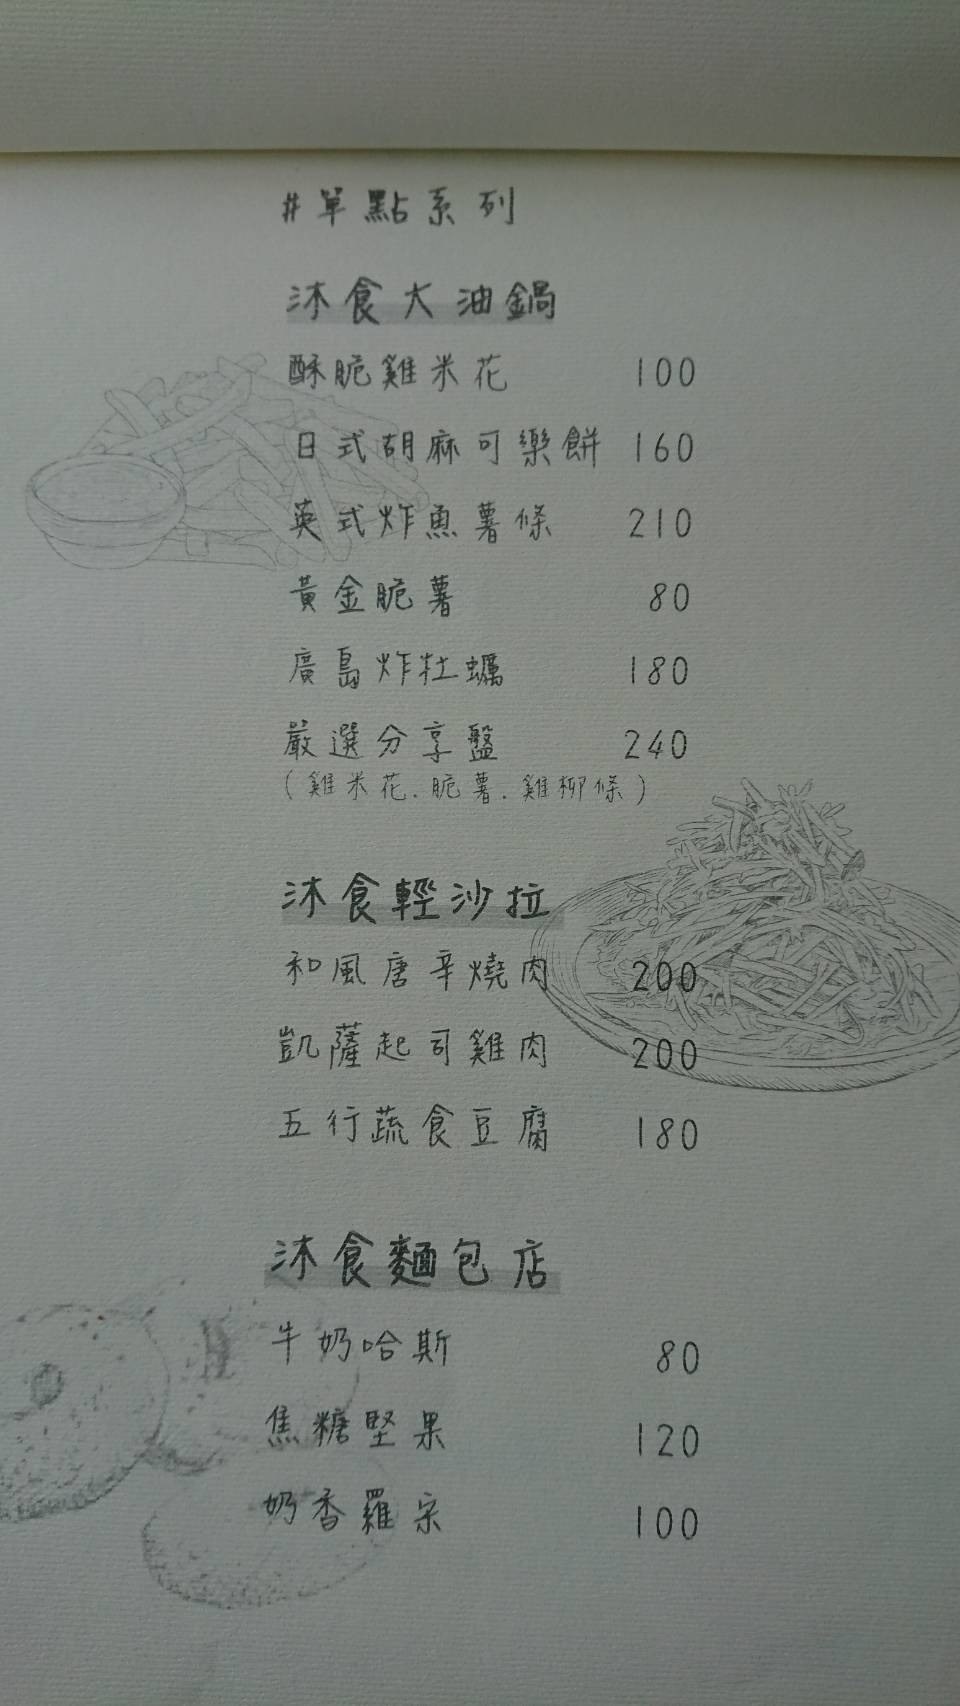 #單點系列
沐食大油鍋
酥脆雞米花 100
日式胡麻可樂餅 160
英式炸魚薯條 210
黃金脆薯 80
廣島炸牡蠣 180
嚴選分享盤 240
(雞米花.脆薯.雞柳條)
沐食輕沙拉
和風唐辛燒肉 200
凱薩起司雞肉 200
五行蔬食豆腐 180
沐食麵包店
牛奶哈斯 80
焦糖堅果 120
奶香羅宋 100